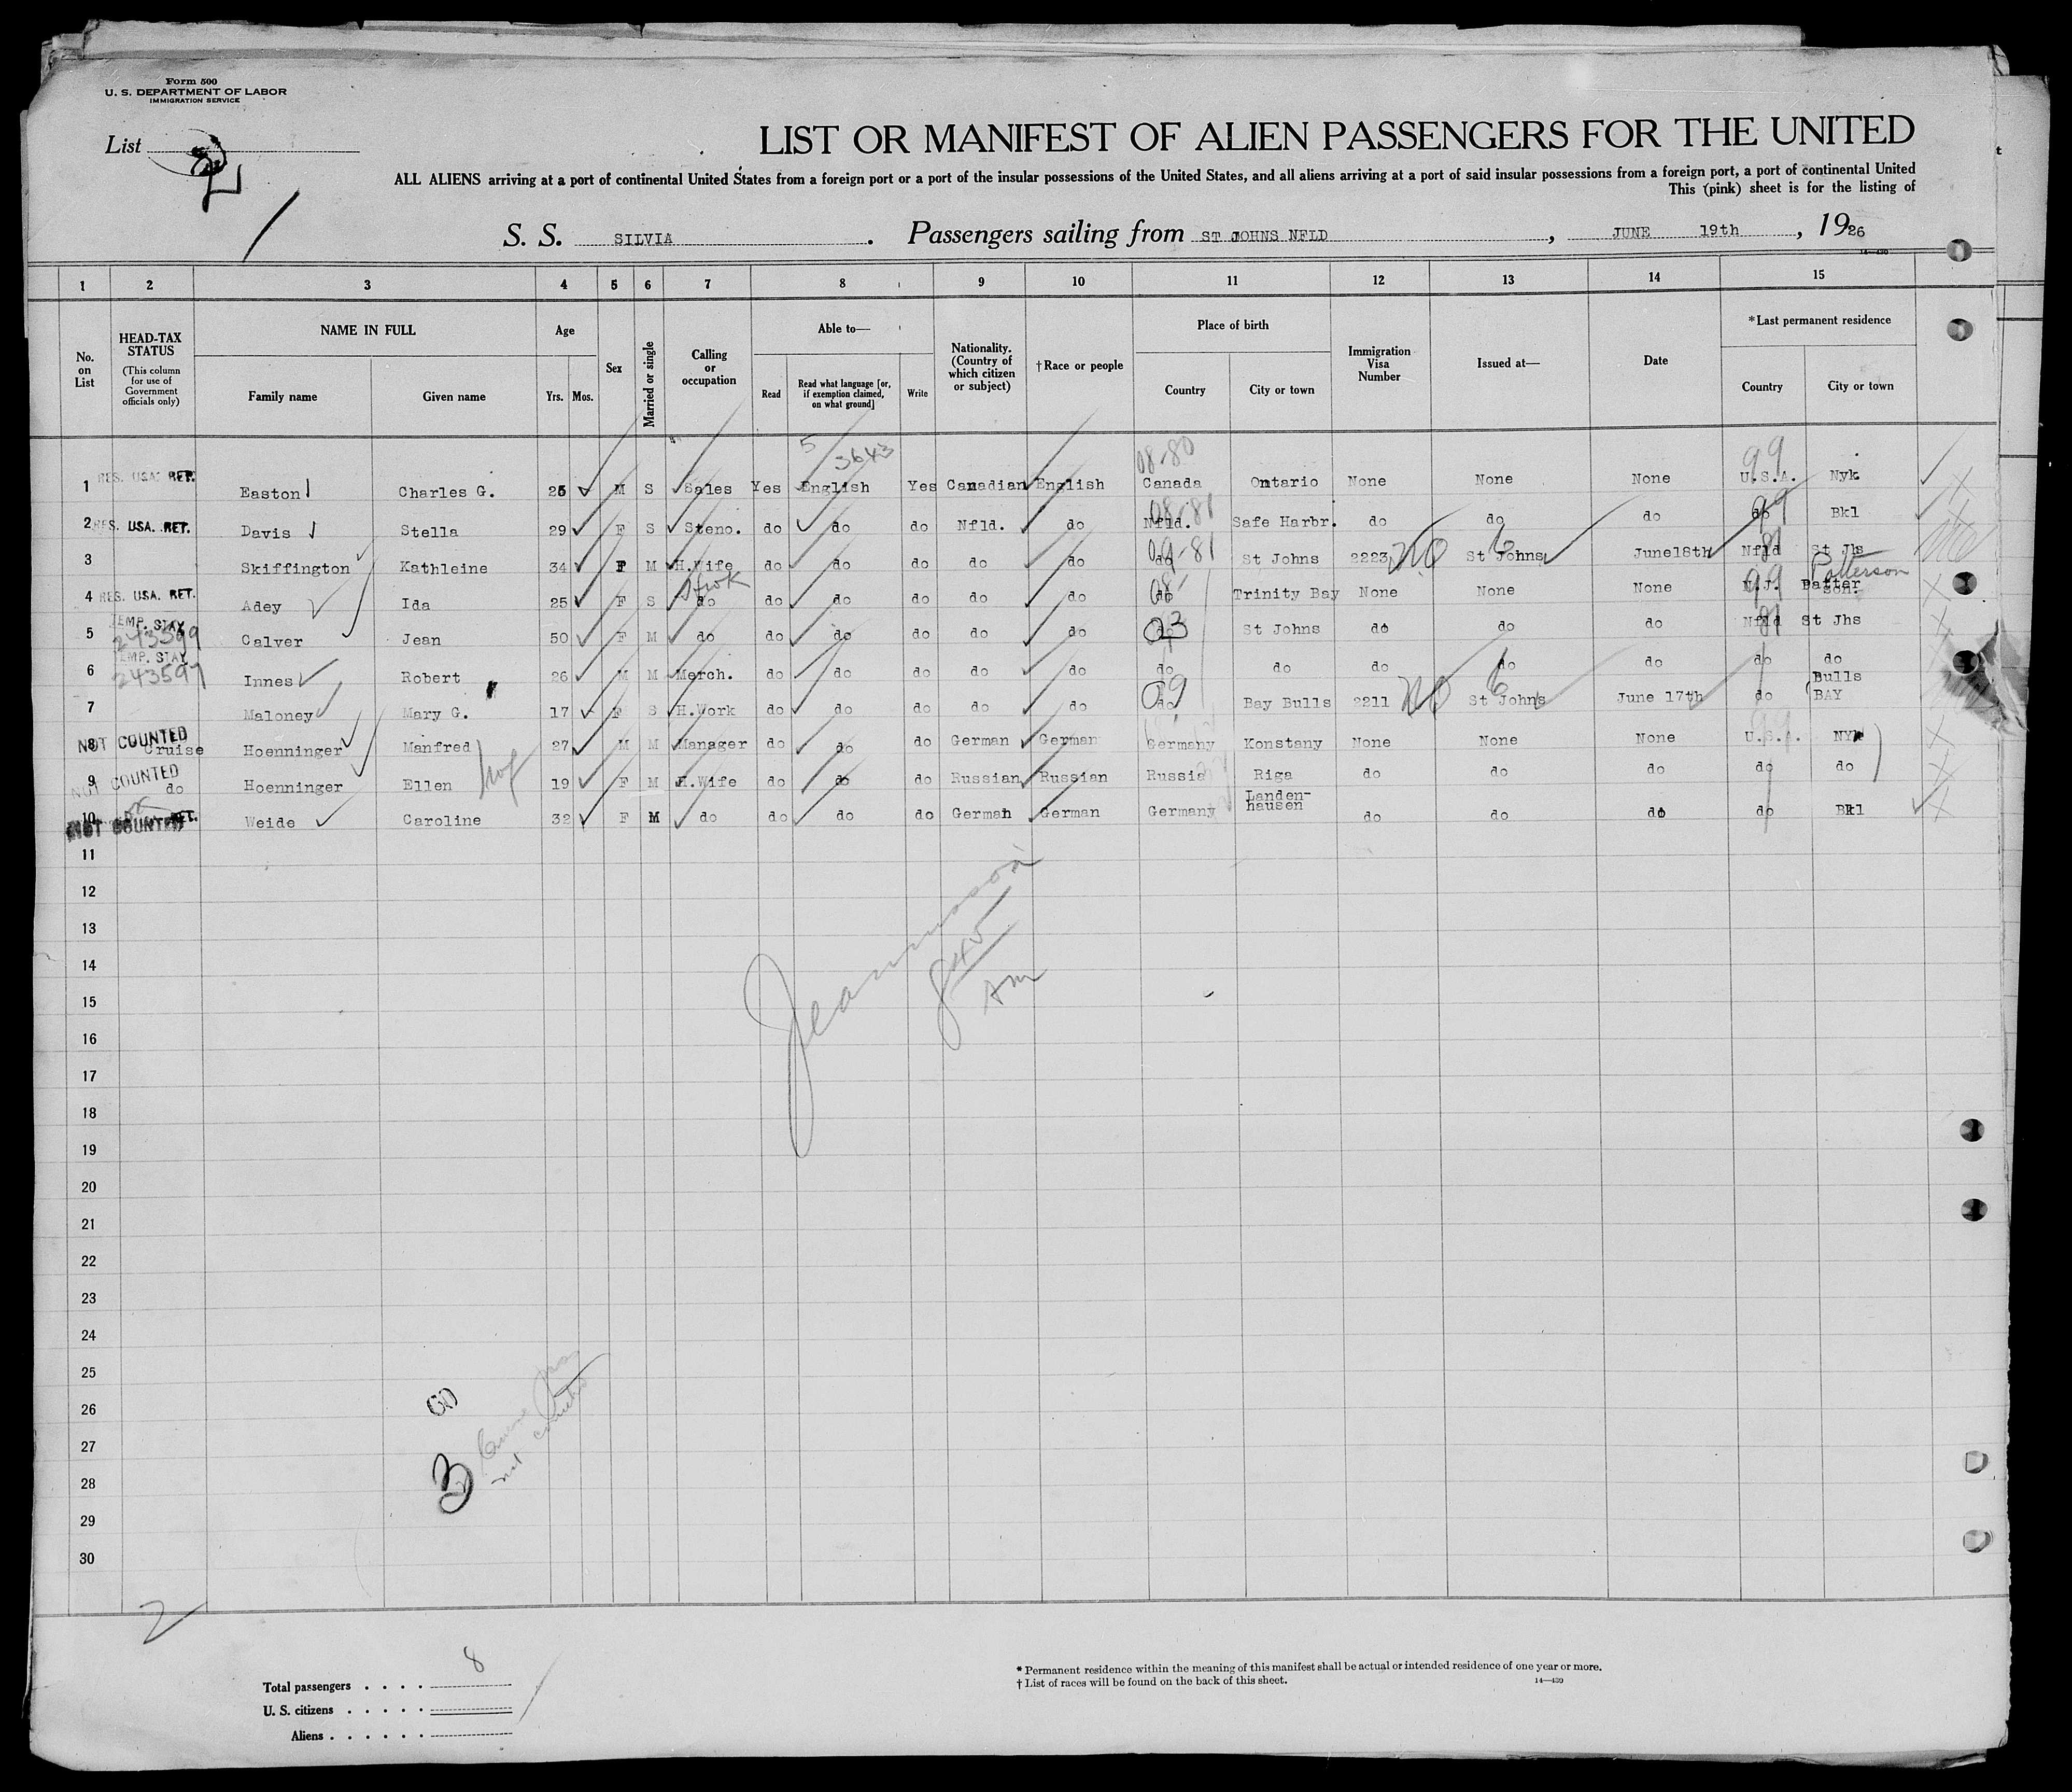 Form 500
U. S. DEPARTMENT OF LABOR
IMMIGRATION SERVICE
List 2
1
LIST OR MANIFEST OF ALIEN PASSENGERS FOR THE UNITED
ALL ALIENS arriving at a port of continental United States from a foreign port or a port of the insular possessions of the United States, and all aliens arriving at a port of said insular possessions from a foreign port, a port of continental United
This (pink) sheet is for the listing of
S. S. SILVIA . Passengers sailing from ST JOHNS NFLD , JUNE 19th , 1926
14—430
1 2 3 4 5 6 7 8 9 10 11 12 13 14 15
No. on List
HEAD-TAX STATUS
(This column for use of Government officials only)
NAME IN FULL
Family name Given name
Age
Yrs. Mos.
Sex
Married or single
Calling or occupation
Able to—
Read
Read what language [or, if exemption claimed, on what ground]
Write
Nationality. (Country of which citizen or subject)
†Race or people
Place of birth
Country City or town
Immigration Visa Number
Issued at—
Date
*Last permanent residence
Country City or town
5 3643 08-80 99
1 RES. USA. RET. Easton Charles G. 25 M S Sales Yes English Yes Canadian English Canada Ontario None None None U.S.A. Nyk
08-81 99
2 RES. USA. RET. Davis Stella 29 F S Steno. do do do Nfld. do Nfld. Safe Harbr. do do do do Bkl
09-81 6 81
3 Skiffington Kathleine 34 F M H.Wife do do do do do do St Johns 2223 St Johns June18th Nfld St Jhs
08- 99 Patterson
4 RES. USA. RET. Adey Ida 25 F S do do do do do do do Trinity Bay None None None N.J. Patter son.
TEMP. STAY
5 243599 Calver Jean 50 F M do do do do do do 03 do St Johns do do do Nfld 81 St Jhs
TEMP. STAY
6 243597 Innes Robert 26 M M Merch. do do do do do do do do do do do do
7 Maloney Mary G. 17 F S H.Work do do do do do 09 do Bay Bulls 2211 St Johns 6 June 17th do Bulls BAY
8 NOT COUNTED Cruise Hoenninger Manfred 27 M M Manager do do do German German Germany Konstany None None None U.S.A. NYk
9 NOT COUNTED do Hoenninger Ellen 19 F M H.Wife do do do Russian Russian Russia Riga do do do do do
10 NOT COUNTED RET. Weide Caroline 32 F M do do do do German German Germany Landen- hausen do do do do Bkl
11
12
13
14
15
16
17
18
19
20
21
22
23
24
25
26
27
28
29
30
3
not counted
2
8
Total passengers
U. S. citizens
Aliens
* Permanent residence within the meaning of this manifest shall be actual or intended residence of one year or more.
† List of races will be found on the back of this sheet.
14—430